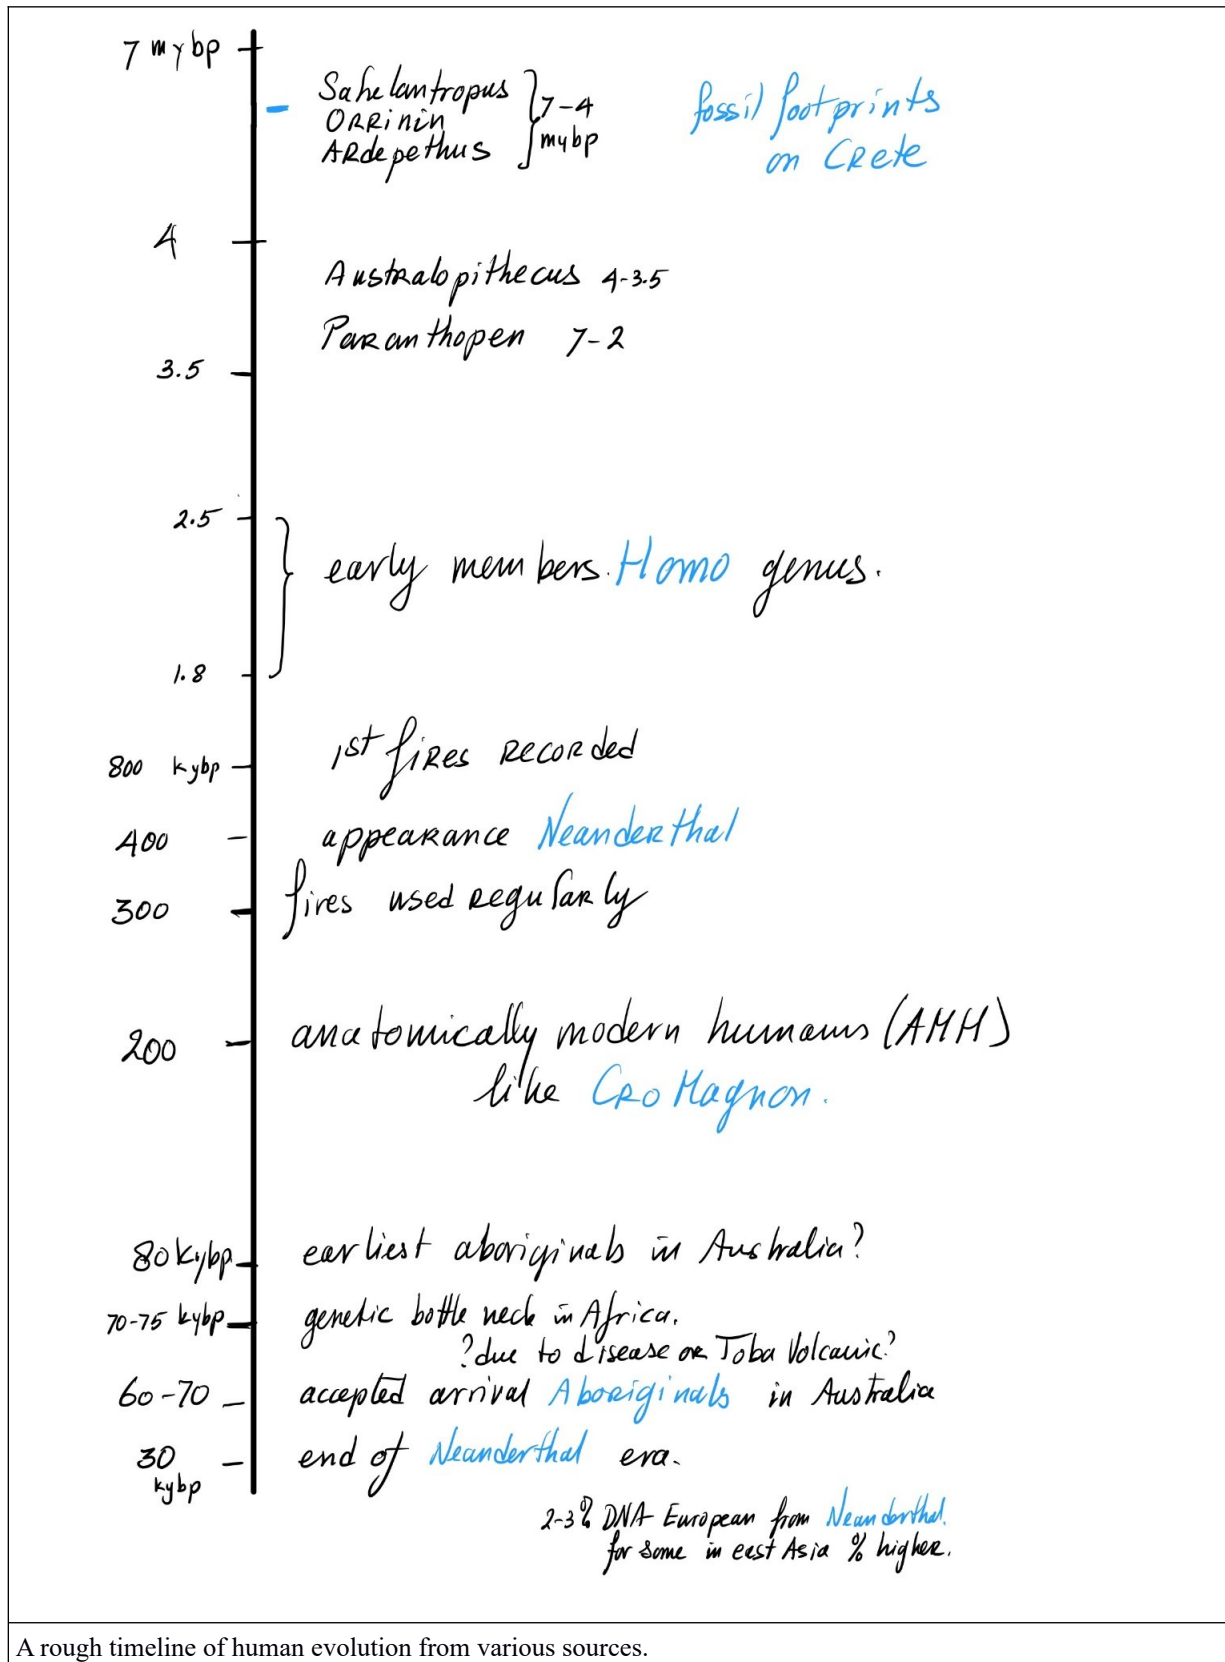 7 mybp
Sahelantropus
ORRinin
ARdepethus
7-4
mybp
fossil footprints
on CRete
4
Australopithecus 4-3.5
Paranthopen 7-2
3.5
2.5
early members. Homo genus.
1.8
800 kybp
1st fires recorded
400
appearance Neanderthal
300
fires used regularly
200
anatomically modern humans (AMH)
like Cro Magnon.
80 kybp
earliest aboriginals in Australia?
70-75 kybp
genetic bottle neck in Africa.
?due to disease or Toba Volcanic?
60-70
accepted arrival Aboriginals in Australia
30
kybp
end of Neanderthal era.
2-3% DNA European from Neanderthal.
for some in east Asia % higher.
A rough timeline of human evolution from various sources.